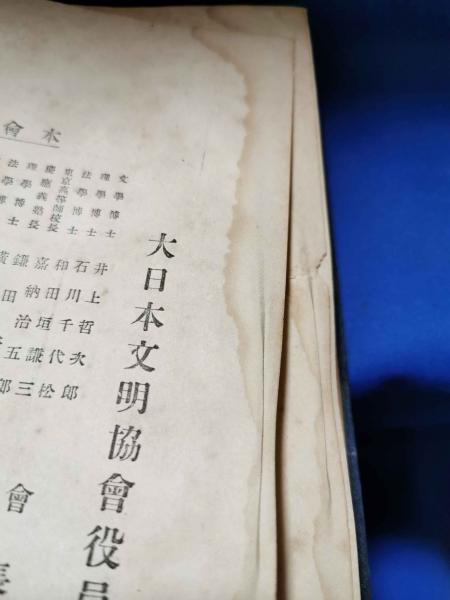 大日本文明協會役員
會長
本會
文學博士 井上哲次郎
理學博士 石川千代松
法學博士 和田垣謙三
東京高等師範校長 嘉納治五郎
慶應義塾長 鎌田
理學博士
法學博